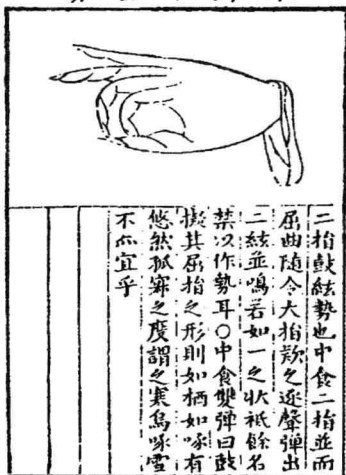 二指鼓絃勢也中食二指並而
屈曲隨令大指欵之逐聲彈出
二絃並鳴若如一之狀祇餘名
禁次作勢耳〇中食雙彈曰鼓
擬其屈指之形則如栖如啄有
悠然孤寒之度謂之寒鳥啄雪
不亦宜乎